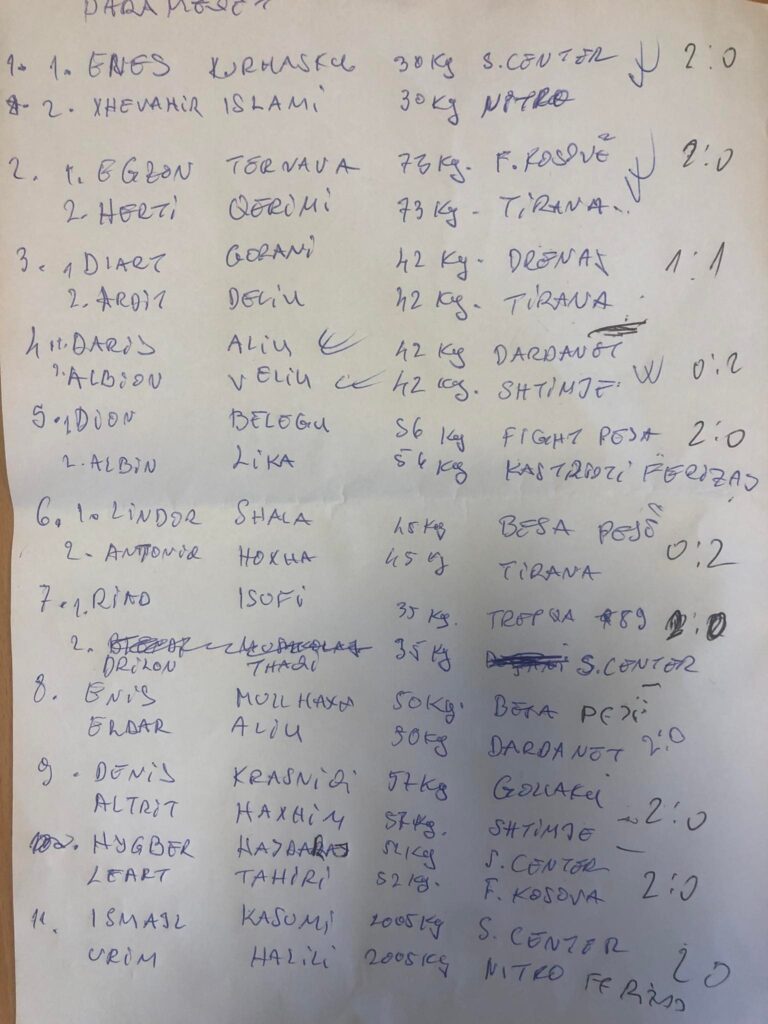 1. 1. ENES KURHASKU 30Kg S.CENTER 2:0
2. XHEVAHIR ISLAMI 30Kg NITRO
2. 1. EGZON TERNAVA 73Kg. F. KOSOVË 2:0
2. HERTI QERIMI 73Kg - TIRANA
3. 1 DIART GORANI 42 Kg. DRENAS 1:1
2. ARDIT DELIU 42 Kg. TIRANA
4 1. DARIS ALIU 42 Kg DARDANET
2. ALBION VELIU 42 Kg. SHTIMJE 0:2
5. 1 DION BELEGU 56 Kg FIGHT PEJA 2:0
2. ALBIN LIKA 54 Kg KASTRIOTI FERIZAJ
6. 1. LINDOR SHALA 45 Kg BESA PEJË
2. ANTONIO HOXHA 45 Kg TIRANA 0:2
7. 1. RIAD ISUFI 35 Kg. TREPÇA 89 2:0
2. 35 Kg S.CENTER
DRILON THAQI
8. ENIS MULLHAXA 50Kg. BESA PEJË
ELDAR ALIU 50Kg DARDANET 2:0
9. DENIS KRASNIQI 57Kg GOLLAKU
ALTRIT HAXHIU 57Kg. SHTIMJE 2:0
10. HYGBER HAJDARAJ 52Kg S.CENTER
LEART TAHIRI 52Kg. F. KOSOVA 2:0
11. ISMAJL KASUMI 2005Kg S. CENTER
URIM HALILI 2005Kg NITRO FERIZAJ 2 0